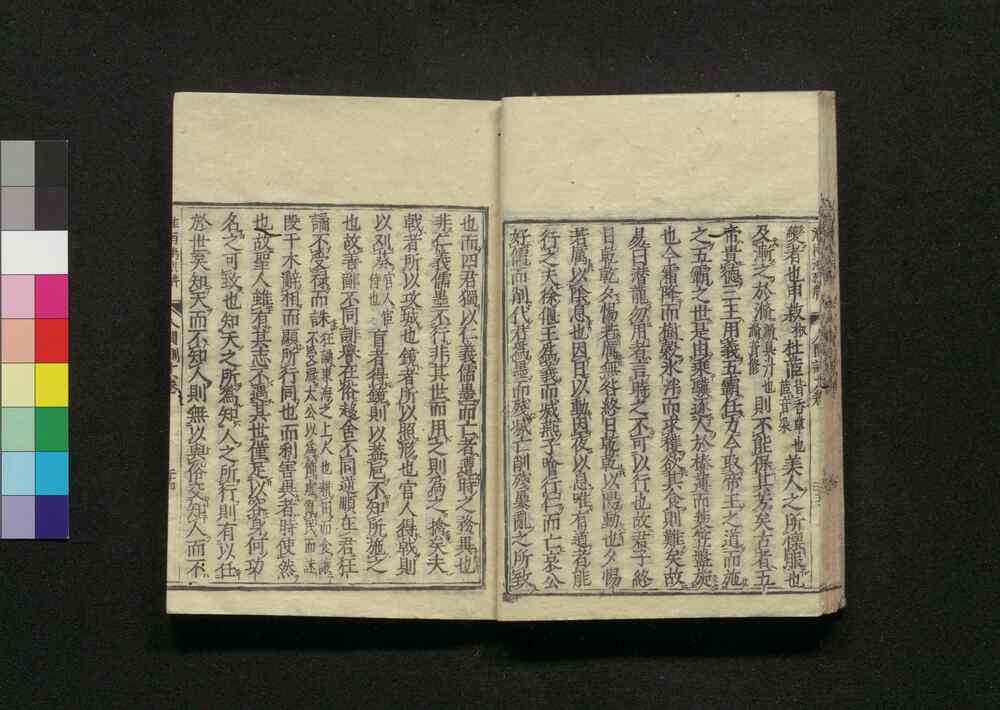 變者也申菽杜茝美人之所懷服也
及漸之於滫則不能保其芳矣古者五
帝貴德三王用義五霸任力今取帝王之道而施
之五霸之世是由乘驥逐人於榛薄而蓑笠盤旋
也今霜降而樹穀冰泮而求穫欲其食則難矣故
易曰潛龍勿用者言時之不可以行也故君子終
日乾乾夕惕若厲無咎終日乾乾以陽動也夕惕
若厲以陰息也因日以動因夜以息唯有道者能
行之夫徐偃王爲義而滅燕子噲行仁而亡哀公
好儒而削代君爲墨而殘滅亡削殘暴亂之所致
也而四君獨以仁義儒墨而亡者遭時之務異也
非仁義儒墨不行非其世而用之則爲之擒矣夫
戟者所以攻城也鏡者所以照形也宮人得戟則
以刈葵盲者得鏡則以蓋卮不知所施之
也故善鄙不同誹譽在俗趨舍不同逆順在君狂
譎不受祿而誅狂譎東海之上人也耕田而食讓不受祿太公以爲飾虛亂民而誅
段干木辭相而顯所行同也而利害異者時使然
也故聖人雖有其志不遇其世僅足以容身何功
名之可致也知天之所爲知人之所行則有以任
於世矣知天而不知人則無以與俗交知人而不